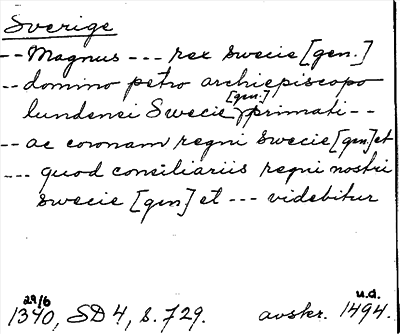 Sverige
-- Magnus --- rex swecie [gen.]
-- domino petro archiepiscopo
lundensi Swecie [gen.] primati --
-- ac coronam regni swecie [gen] et
--- quod consiliariis regni nostri
swecie [gen] et --- videbitur
29/6
1340, SD 4, s. 729. avskr. 1494. u.d.